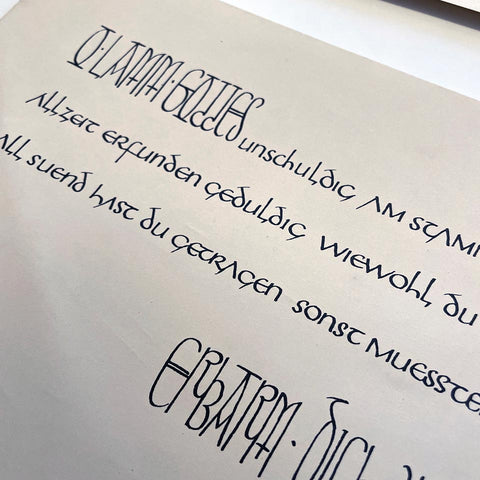 O·LAMM·GOTTES unschuldig AM STAM
Allzeit erfunden geduldig wiewohl du
All suend hast du getragen sonst muesste
ERBARM·DICH